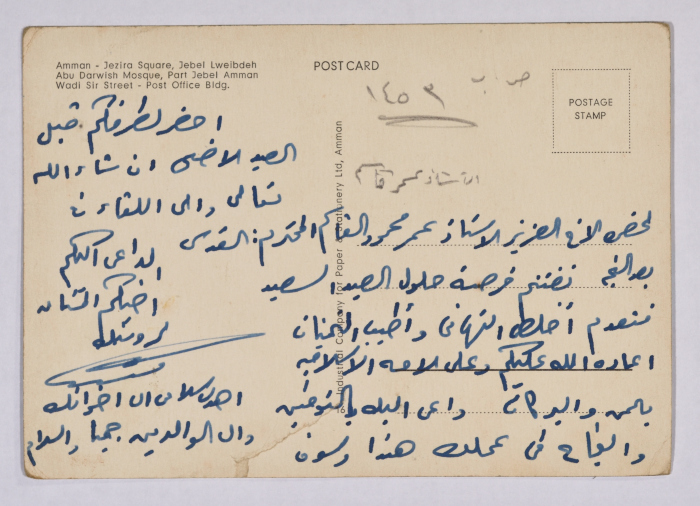 Amman - Jezira Square, Jebel Lweibdeh
Abu Darwish Mosque, Part Jebel Amman
Wadi Sir Street - Post Office Bldg.
POST CARD
POSTAGE
STAMP
Industrial Company for Paper & Stationery Ltd, Amman
ص ب
١٤٥٣
الاستاذ عمر قاسم
لحضرة الأخ العزيز الاستاذ عمر محمود القاسم المحترم القدس
بعد التحية نغتنم فرصة حلول العيد السعيد
فنتقدم أخلص التهاني وأطيب التمنيات
اعاده الله عليكم وعلى الامة الاسلامية
باليمن والبركات داعي اليه بالتوفيق
والنجاح في عملك هذا وسوف
احضر لطرفكم قبل
العيد الاضحى ان شاء الله
تعالى والى اللقاء
لداعي اليكم
اخيكم
اهدي سلامي الى اخوانك
والى الوالدين جميعا والسلام